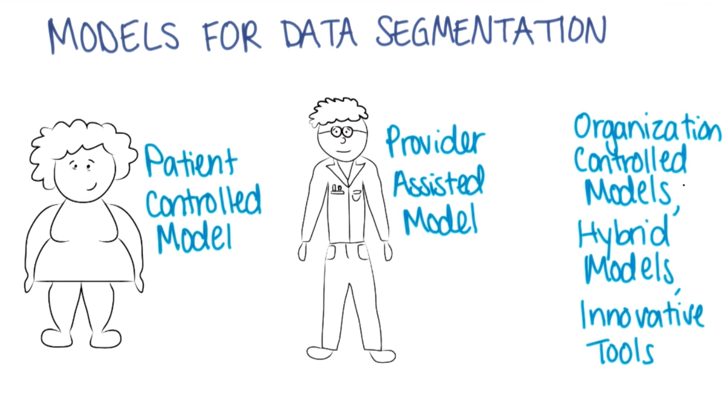 MODELS FOR DATA SEGMENTATION
Patient
Controlled
Model
Provider
Assisted
Model
Organization
Controlled
Models,
Hybrid
Models,
Innovative
Tools